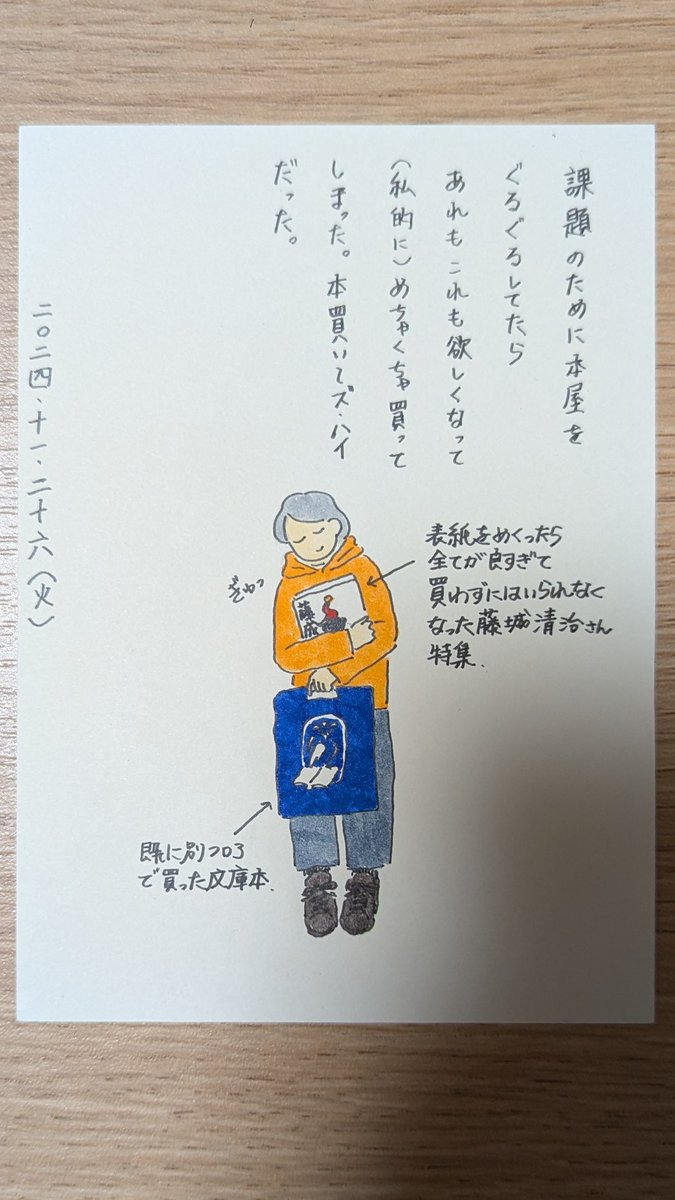 課題のために本屋を
ぐるぐるしてたら
あれもこれも欲しくなって
(私的に)めちゃくちゃ買って
しまった。本買いてズ・ハイ
だった。
表紙をめくったら
全てが良すぎて
買わずにはいられなく
なった藤城清治さん
特集.
ぎゅっ
藤城
既に別フロア
で買った文庫本.
二〇二四.十一.二十六(火)